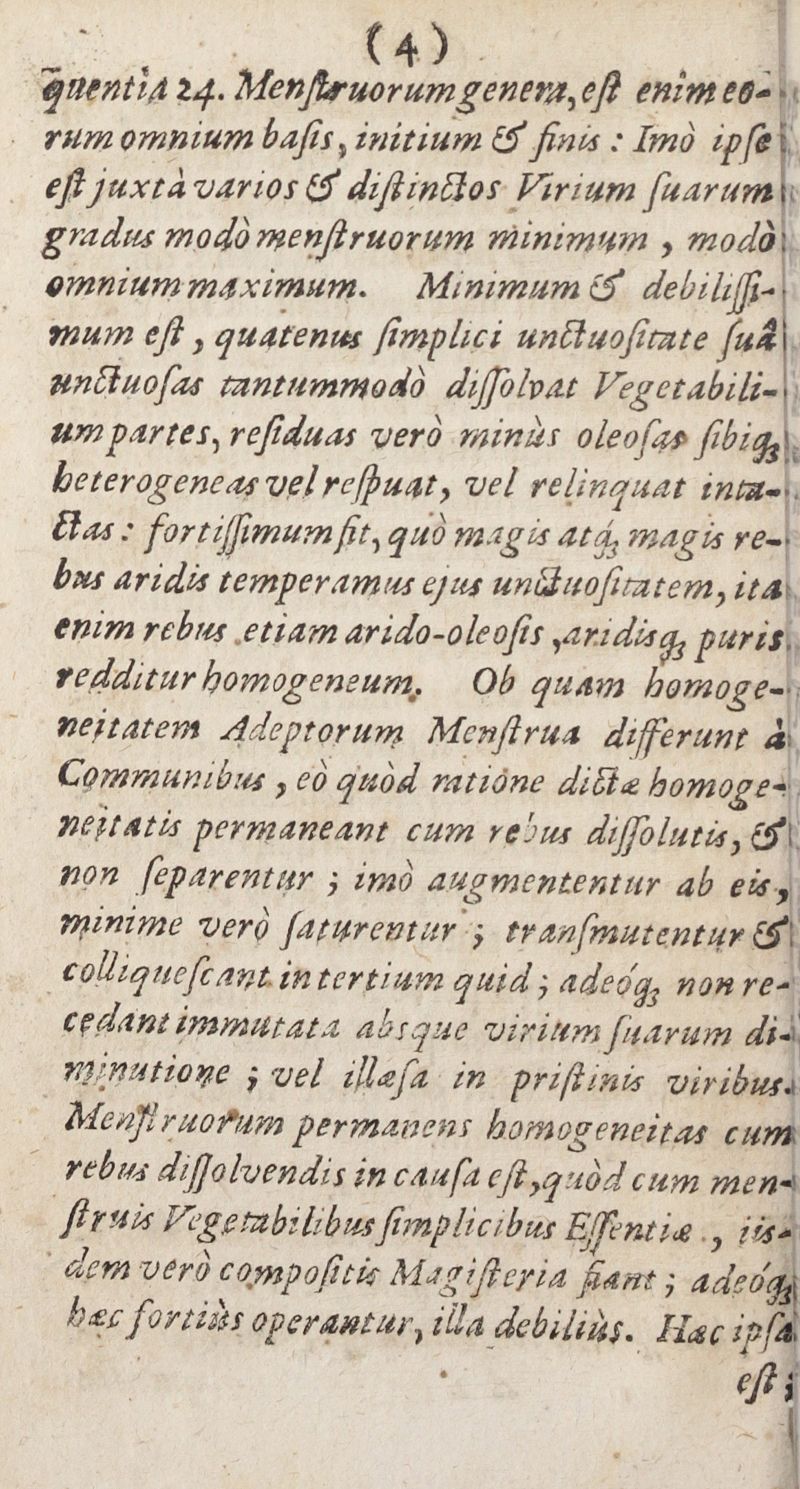 (4)
quentia 24. Menſtruorum genera, eſt enim eo-
rum omnium baſis, initium & finis : Imò ipſe
eſt juxtà varios & diſtinctos Virium ſuarum
gradus modò menſtruorum minimum , modò
omnium maximum. Minimum & debiliſſi-
mum eſt , quatenus ſimplici unctuoſitate ſuâ
unctuoſas tantummodò diſſolvat Vegetabili-
um partes, reſiduas verò minùs oleoſas ſibiq;
heterogeneas vel reſpuat, vel relinquat inta-
ctas : fortiſſimum fit, quò magis atq́; magis re-
bus aridis temperamus ejus unctuoſitatem, ita
enim rebus etiam arido-oleoſis , aridisq; puris
redditur homogeneum. Ob quam homoge-
neitatem Adeptorum Menſtrua differunt à
Communibus , eò quòd ratione dictæ homoge-
neitatis permaneant cum rebus diſſolutis, &
non ſeparentur ; imò augmententur ab eis,
minime verò ſaturentur ; tranſmutentur &
colliqueſcant in tertium quid ; adeóq; non re-
cedant immutata absque virium ſuarum di-
minutione ; vel illæſa in priſtinis viribus.
Menſtruorum permanens homogeneitas cum
rebus diſſolvendis in cauſa eſt, quòd cum men-
ſtruis Vegetabilibus ſimplicibus Eſſentiæ , iis-
dem verò compoſitis Magiſteria fiant ; adeóq;
hæc fortiùs operantur, illa debiliùs. Hæc ipſa
eſt ;